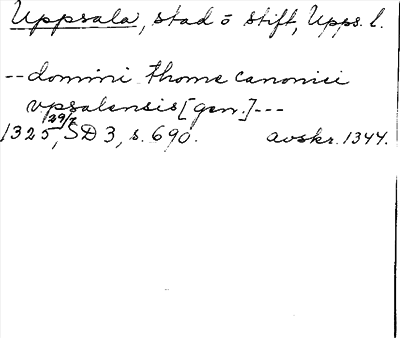 Uppsala, stad o stift, Upps. l.
-- domini thome canonici
vpsalensis [gen.] ---
1325 29/7, SD 3, s. 690. avskr. 1344.